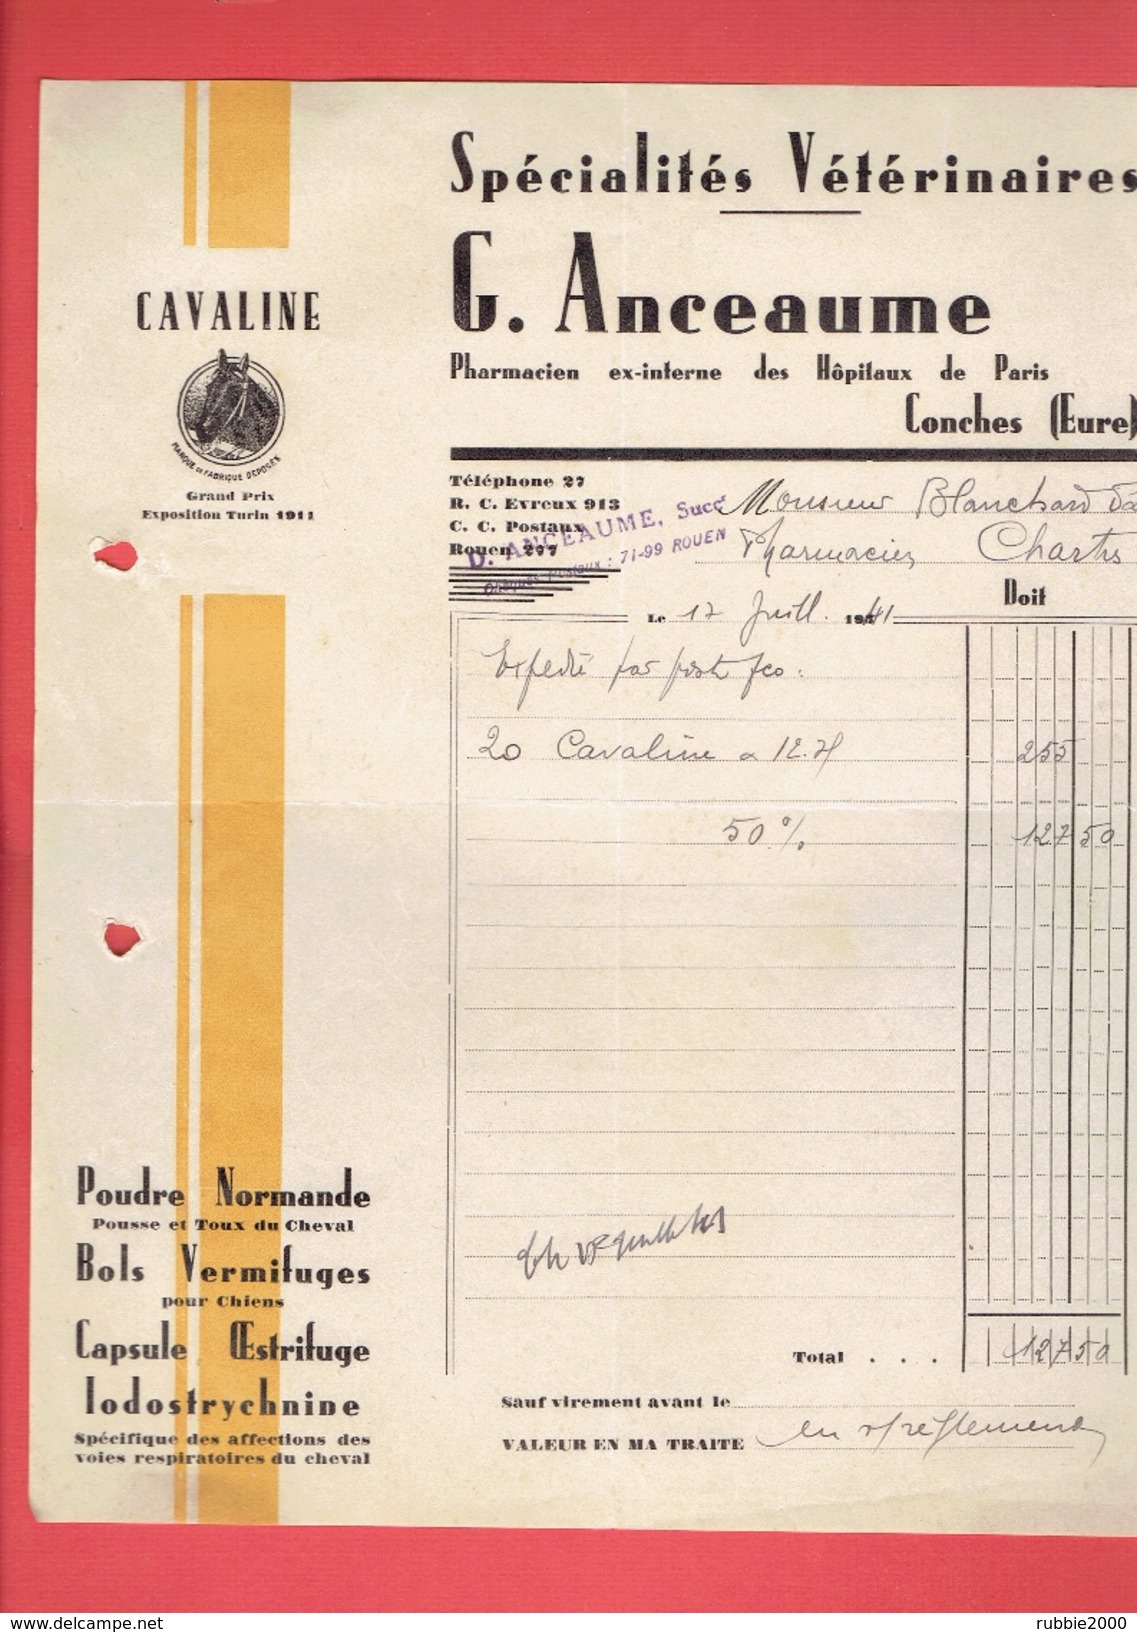 Spécialités Vétérinaires
G. Anceaume
Pharmacien ex-interne des Hôpitaux de Paris
Conches (Eure)
CAVALINE
MARQUE DE FABRIQUE DEPOSÉE
Grand Prix
Exposition Turin 1911
Téléphone 27
R. C. Evreux 913
C. C. Postaux
Rouen 277
D. ANCEAUME, Succ
Chèques Postaux : 71-99 ROUEN
Monsieur Blanchard
Pharmacien Chartres
Doit
Le 17 Juill. 1941
Expédié par poste fco :
20 Cavaline a 12.75 255
50 % 127 50
Total . . . 127 50
Sauf virement avant le
VALEUR EN MA TRAITE en règlement
Poudre Normande
Pousse et Toux du Cheval
Bols Vermifuges
pour Chiens
Capsule Œstrifuge
Iodostrychnine
Spécifique des affections des
voies respiratoires du cheval
delcampe.net
rubbie2000